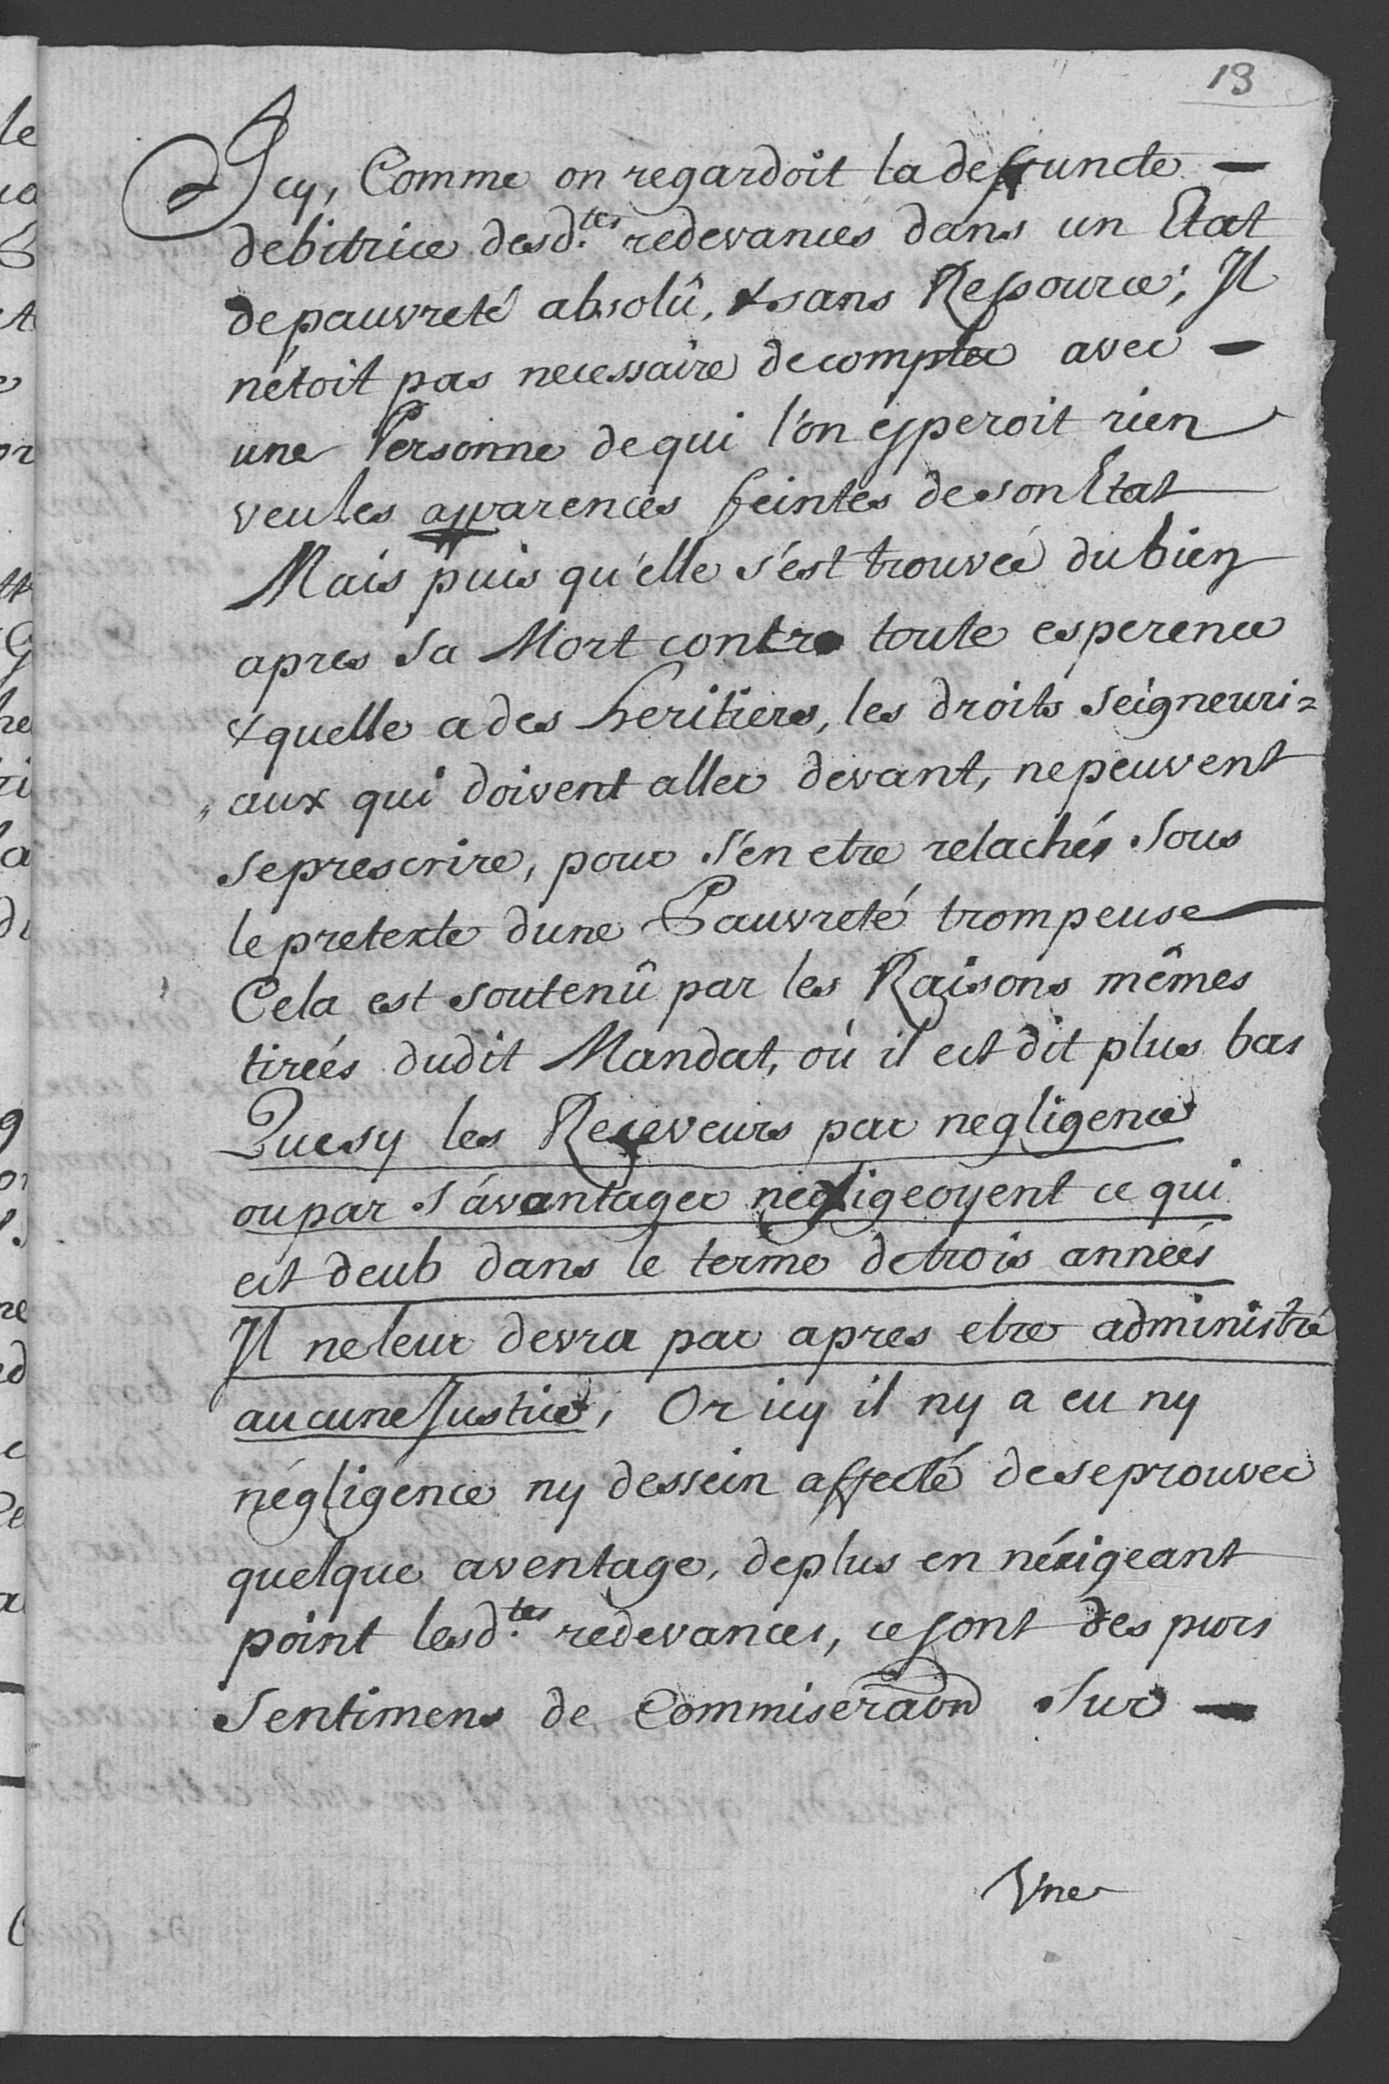 13
Icy, Comme on regardoit la deffuncte
debitrice desd.tes redevances dans un Etat
de pauvreté absolû, & sans Ressource; Il
nétoit pas necessaire de compter avec
une Personne de qui l'on esperoit rien
veu les apparences feintes de son Etat
Mais puis qu'elle s'est trouvée du bien
apres sa Mort contre toute esperence
& quelle a des heritiers, les droits seigneuri=
aux qui doivent aller devant, ne peuvent
se prescrire, pour s'en etre relachés sous
le pretexte dune Pauvreté trompeuse
Cela est soutenû par les Raisons mêmes
tireés dudit Mandat, où il est dit plus bas
Que sy les Receveurs par negligence
ou par s'avantager negligeoyent ce qui
est deub dans le terme de trois anneés
Il ne leur devra par apres etre administré
aucune Justice, Or icy il ny a eu ny
négligence ny dessein affecté de se prouver
quelque aventage, de plus en néxigeant
point lesd.tes redevances, ce sont des purs
Sentimens de Commiseraôn sur
Vne